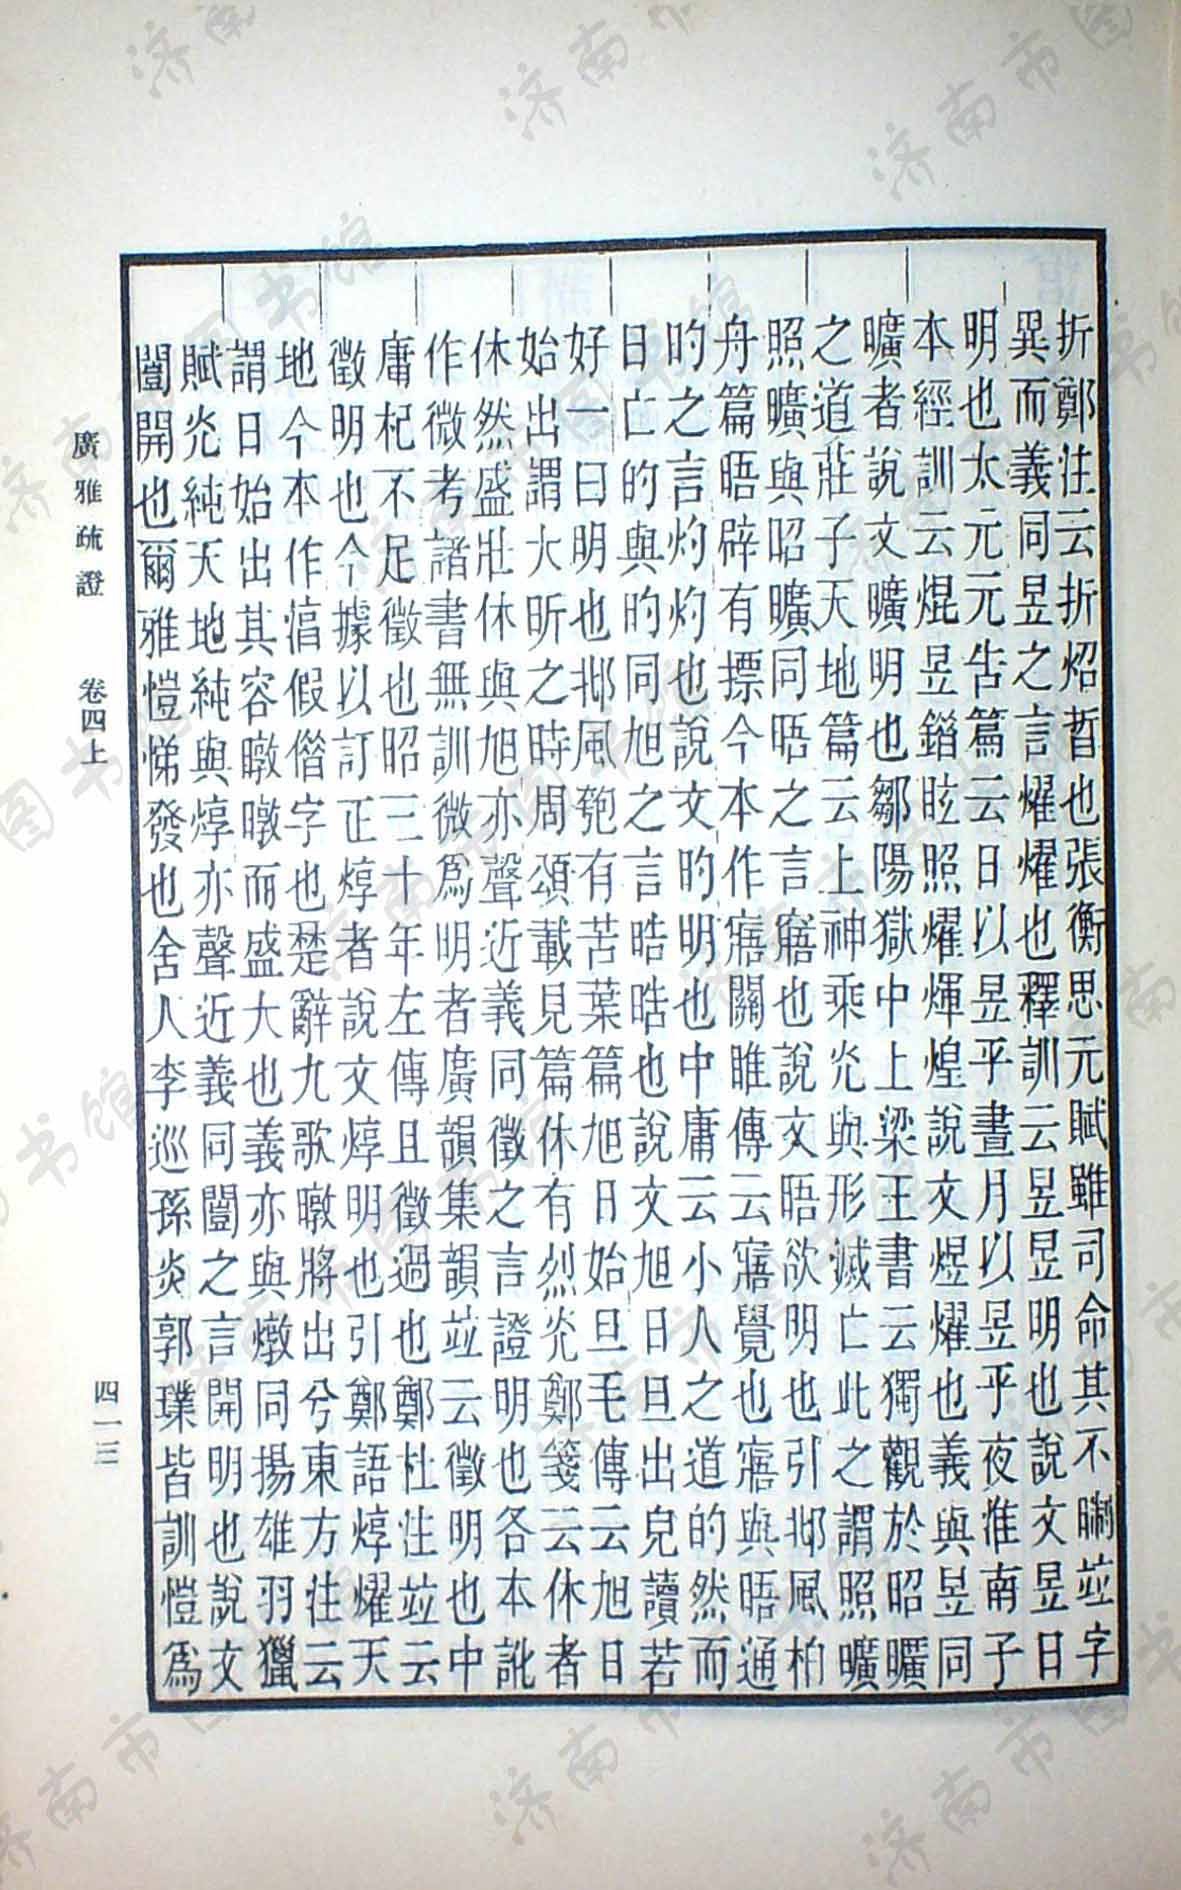 折鄭注云折炤晢也張衡思元賦雖司命其不晣竝字
異而義同昱之言燿燿也釋訓云昱昱明也說文昱日
明也太元元告篇云日以昱乎晝月以昱乎夜淮南子
本經訓云焜昱錯眩照燿煇煌說文煜燿也義與昱同
曠者說文曠明也鄒陽獄中上梁王書云獨觀於昭曠
之道莊子天地篇云上神乘光與形滅亡此之謂照曠
照曠與昭曠同晤之言寤也說文晤欲明也引邶風柏
舟篇晤辟有摽今本作寤關雎傳云寤覺也寤與晤通
旳之言灼灼也說文旳明也中庸云小人之道的然而
日亡的與旳同旭之言晧晧也說文旭日旦出皃讀若
好一曰明也邶風匏有苦葉篇旭日始旦毛傳云旭日
始出謂大昕之時周頌載見篇休有烈光鄭箋云休者
休然盛壯休與旭亦聲近義同徵之言證明也各本訛
作微考諸書無訓微爲明者廣韻集韻竝云徵明也中
庸杞不足徵也昭三十年左傳且徵過也鄭杜注竝云
徵明也今據以訂正焞者說文焞明也引鄭語焞燿天
地今本作淳假借字也楚辭九歌暾將出兮東方注云
謂日始出其容暾暾而盛大也義亦與燉同揚雄羽獵
賦光純天地純與焞亦聲近義同闓之言開明也說文
闓開也爾雅愷悌發也舍人李巡孫炎郭璞皆訓愷爲
廣雅疏證 卷四上 四一三
济南市图书馆